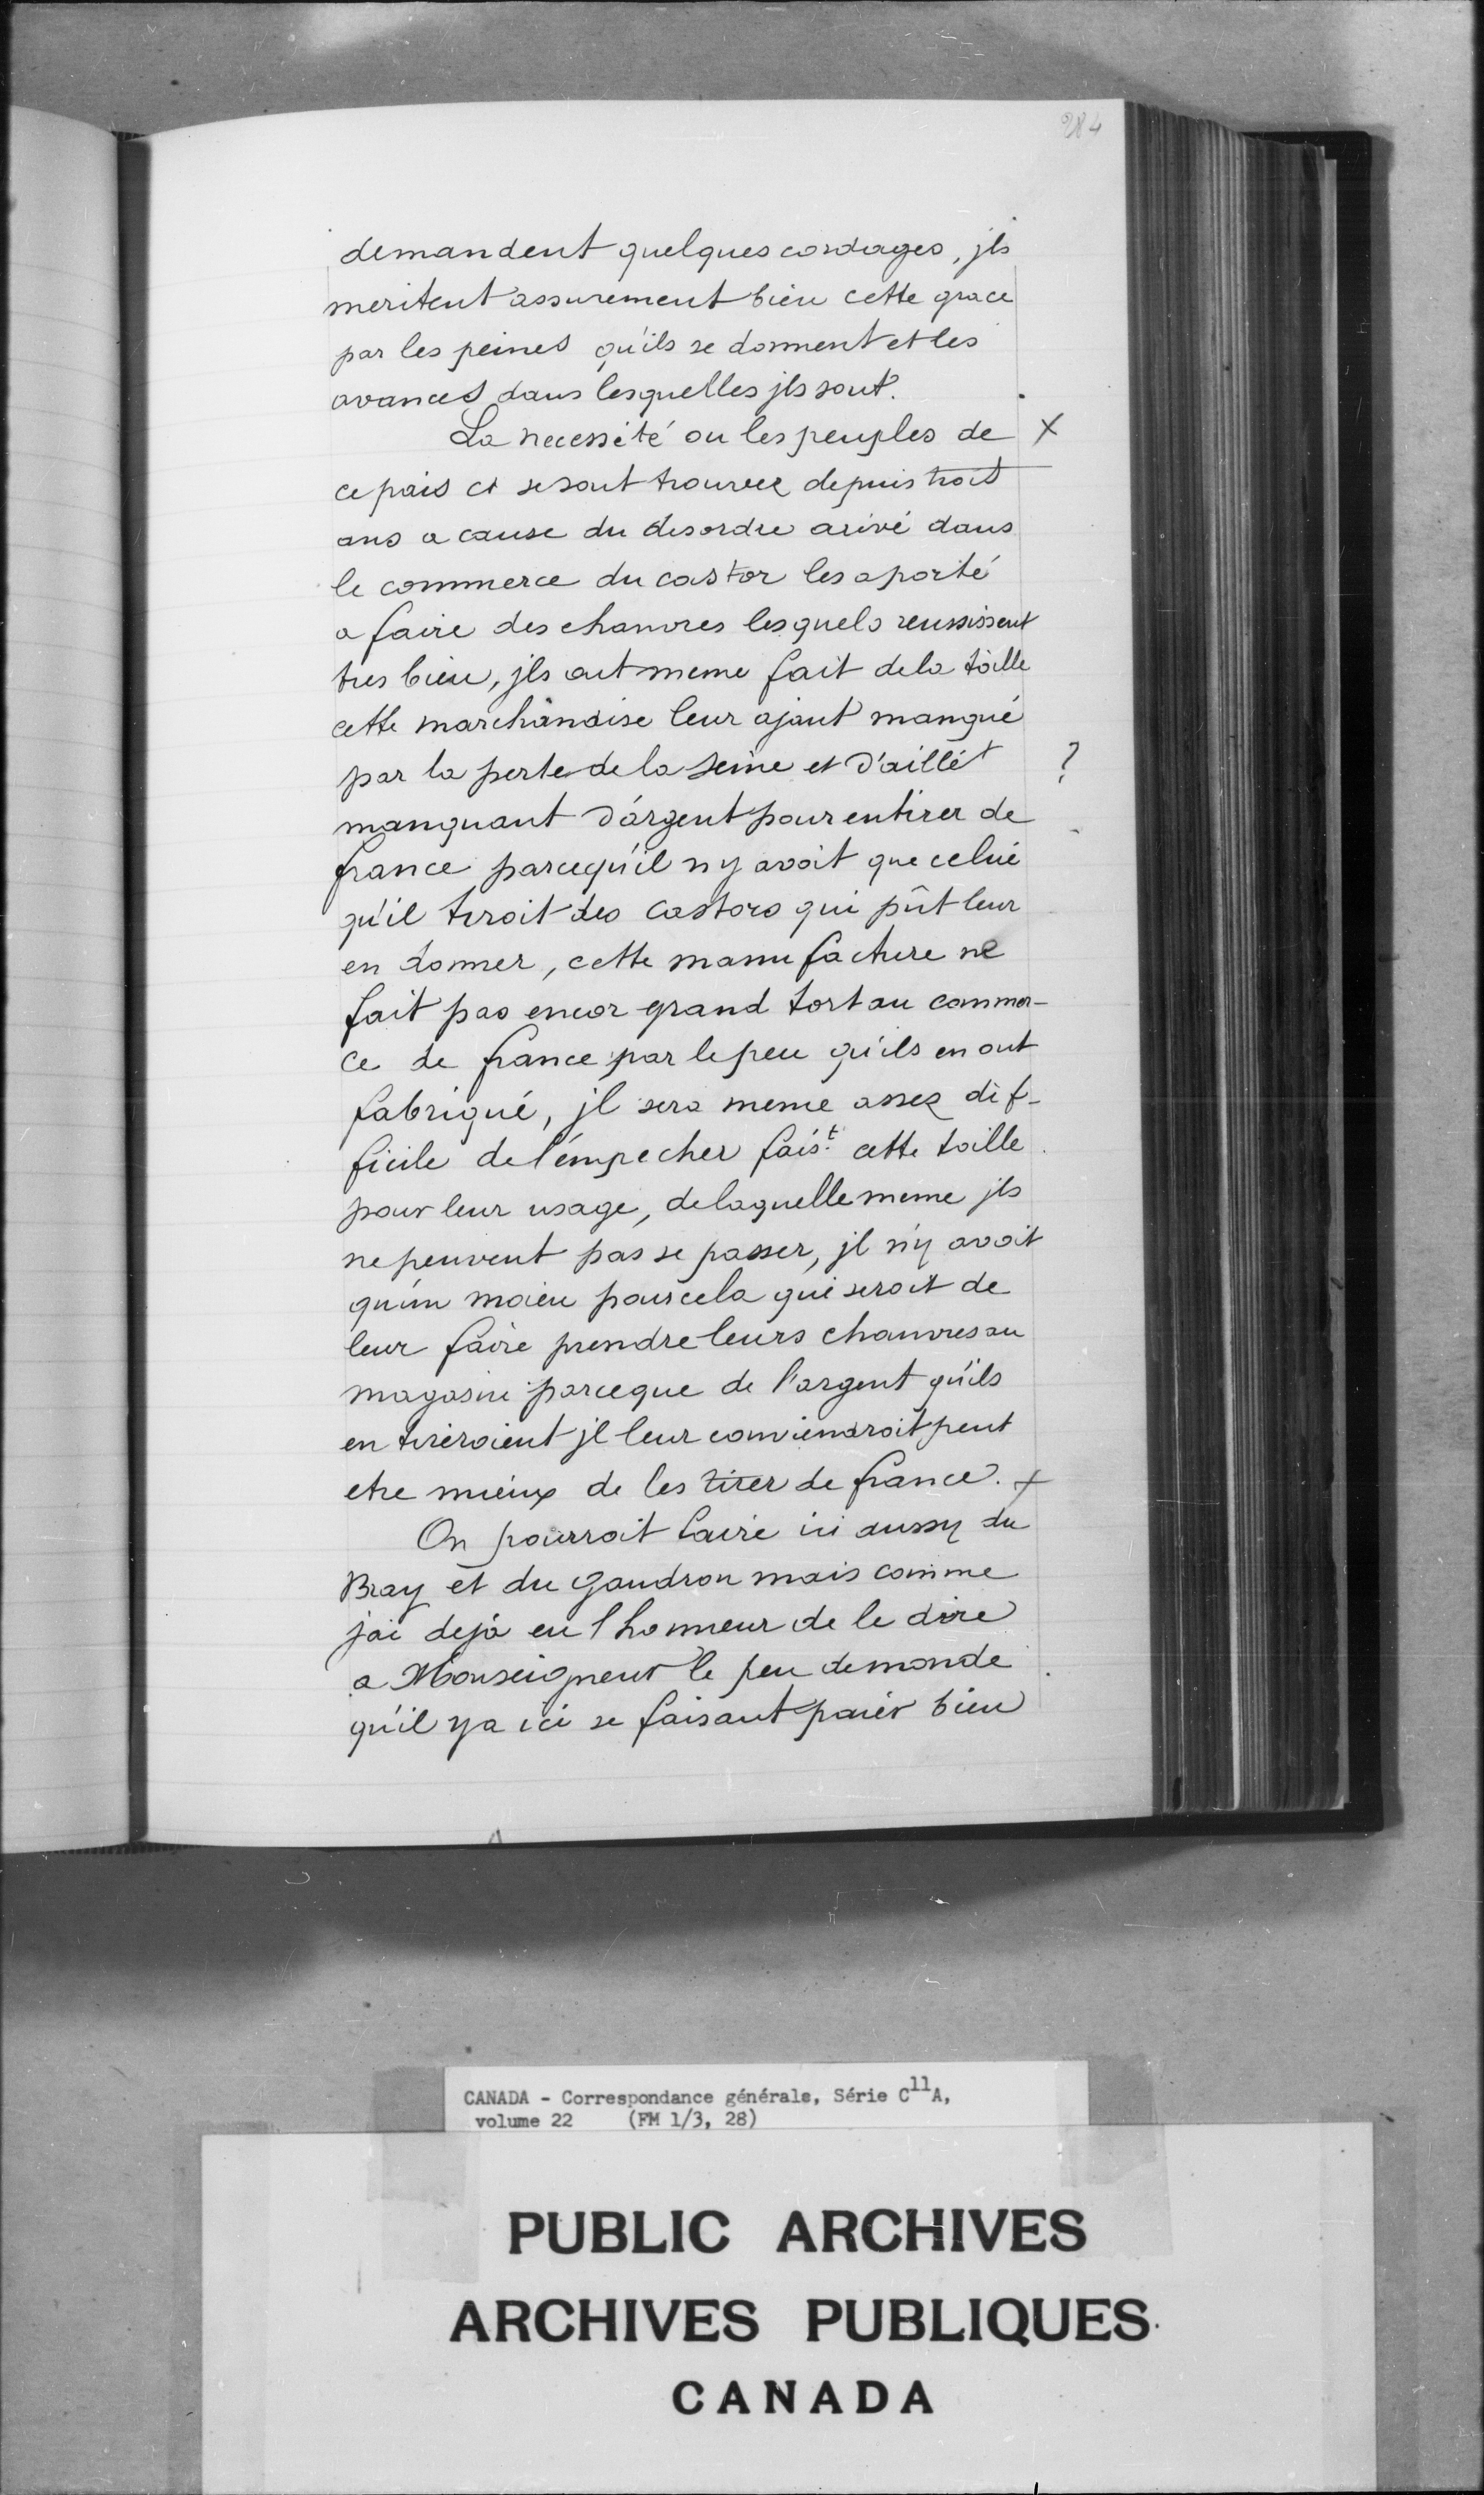 284
demandent quelques cordages, jls
meritent assurement bien cette grace
par les peines qu'ils se donnent et les
avances dans lesquelles jls sont.
La necessité ou les peuples de X
ce pais ci se sont trouvez depuis trois
ans a cause du desordre arivé dans
le commerce du castor les a porté
a faire des chanvres lesquels reussissent
tres bien, jls ont meme fait de la toille
cette marchandise leur ajant manqué
par la perte de la Seine et d'aillét ?
manquant d'argent pour en tirer de
france parcequ'il n y avoit que celui
qu'il tiroit des castors qui pût leur
en donner, cette manufacture ne
fait pas encor grand tort au commer-
ce de france par le peu qu'ils en ont
fabriqué, jl sera meme assez dif-
ficile de l'émpecher fais.t cette toille
pour leur usage, de laquelle meme jls
ne peuvent pas se passer, jl n'y avoit
qu'un moien pour cela qui seroit de
leur faire prendre leurs chanvres au
magasin parceque de l'argent qu'ils
en tireroient jl leur conviendroit peut
etre mieux de les tirer de france. X
On pourroit faire ici aussy du
Bray et du gaudron mais comme
j'ai dejà eu l honneur de le dire
a Monseigneur le peu de monde
qu'il y a ici se faisant paier bien
CANADA - Correspondance générale, Série C11A,
volume 22 (FM 1/3, 28)
PUBLIC ARCHIVES
ARCHIVES PUBLIQUES
CANADA